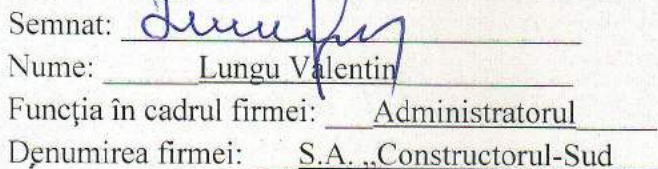 Semnat:
Nume: Lungu Valentin
Funcția în cadrul firmei: Administratorul
Denumirea firmei: S.A. „Constructorul-Sud